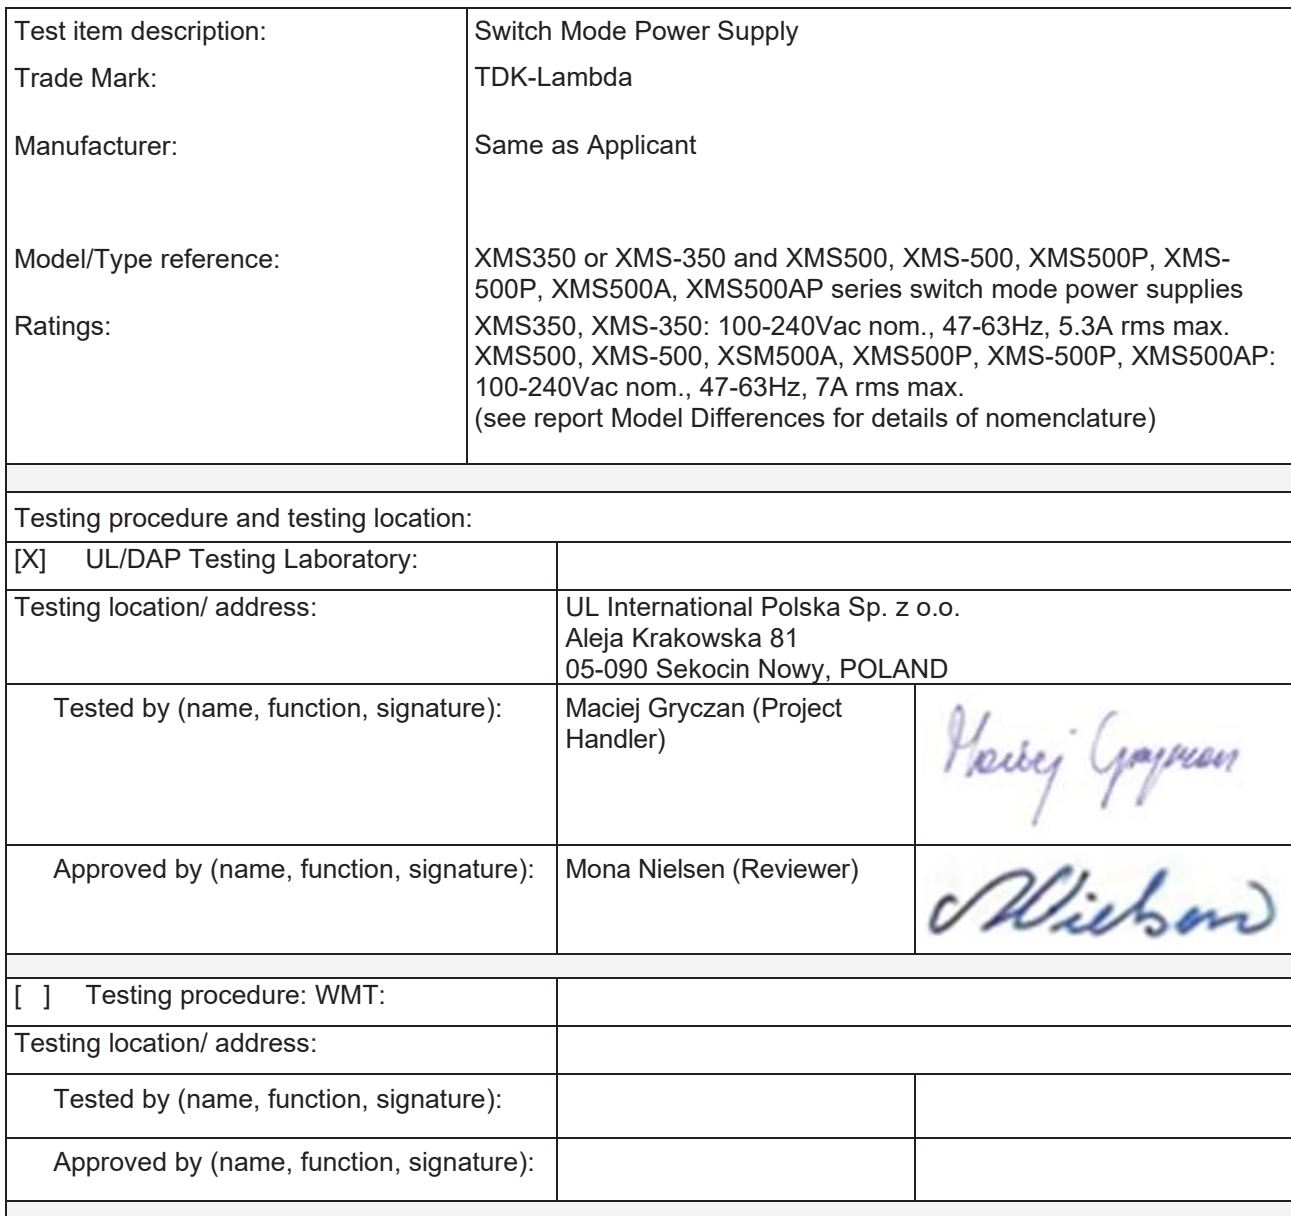 Test item description: Switch Mode Power Supply
Trade Mark: TDK-Lambda
Manufacturer: Same as Applicant
Model/Type reference: XMS350 or XMS-350 and XMS500, XMS-500, XMS500P, XMS-
500P, XMS500A, XMS500AP series switch mode power supplies
Ratings: XMS350, XMS-350: 100-240Vac nom., 47-63Hz, 5.3A rms max.
XMS500, XMS-500, XSM500A, XMS500P, XMS-500P, XMS500AP:
100-240Vac nom., 47-63Hz, 7A rms max.
(see report Model Differences for details of nomenclature)
Testing procedure and testing location:
[X] UL/DAP Testing Laboratory:
Testing location/ address: UL International Polska Sp. z o.o.
Aleja Krakowska 81
05-090 Sekocin Nowy, POLAND
Tested by (name, function, signature): Maciej Gryczan (Project
Handler)
Maciej Gryczan
Approved by (name, function, signature): Mona Nielsen (Reviewer)
[ ] Testing procedure: WMT:
Testing location/ address:
Tested by (name, function, signature):
Approved by (name, function, signature):